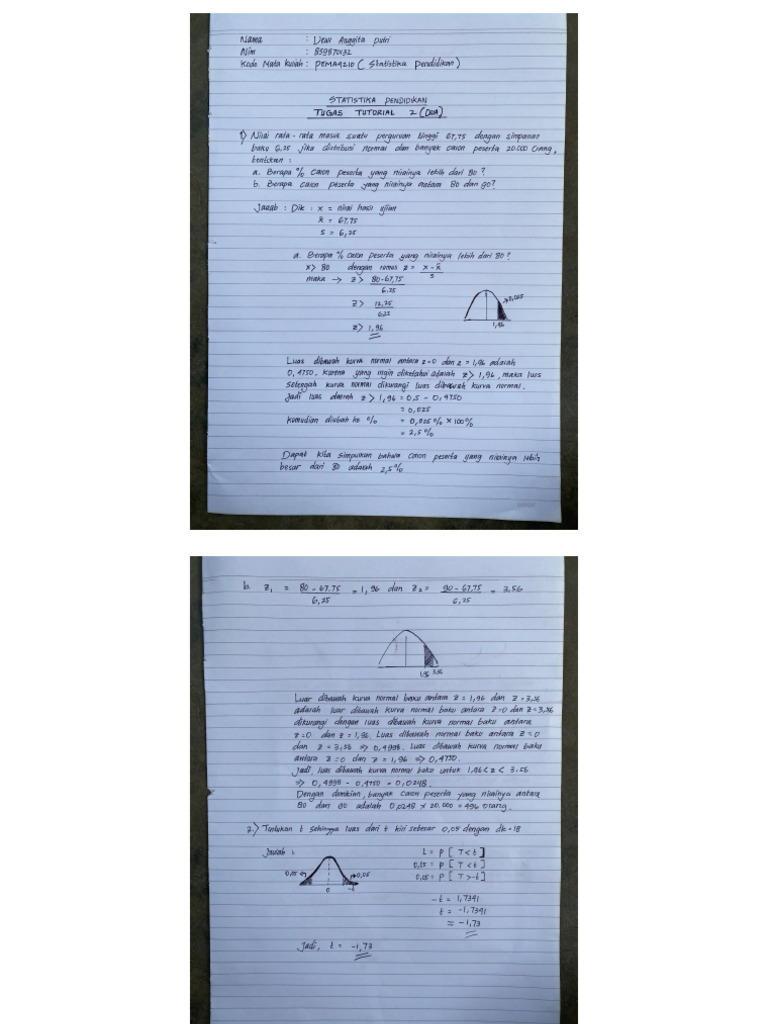 Nama : Dewi Anggita putri
Nim : 859870132
Kode Mata kuliah : PEMA4210 ( Statistika pendidikan)
STATISTIKA PENDIDIKAN
TUGAS TUTORIAL 2 (DUA)
1) Nilai rata-rata masuk suatu perguruan tinggi 67,75 dengan simpanan
baku 6,25 jika distribusi normal dan banyak calon peserta 20.000 orang,
tentukan :
a. Berapa % calon peserta yang nilainya lebih dari 80 ?
b. Berapa calon peserta yang nilainya antara 80 dan 90?
Jawab : Dik : x = nilai hasil ujian
x̄ = 67,75
s = 6,25
a. Berapa % calon peserta yang nilainya lebih dari 80 ?
x > 80 dengan rumus z = x - x̄ / s
maka → z > 80-67,75 / 6,25
z > 12,25 / 6,25
z > 1,96
0,025
1,96
Luas dibawah kurva normal antara z=0 dan z = 1,96 adalah
0,4750. Karena yang ingin diketahui adalah z > 1,96, maka luas
setengah kurva normal dikurangi luas dibawah kurva normal.
Jadi luas daerah z > 1,96 = 0,5 - 0,4750
= 0,025
Kemudian diubah ke % = 0,025 % x 100%
= 2,5 %
Dapat kita simpulkan bahwa calon peserta yang nilainya lebih
besar dari 80 adalah 2,5%
b. Z₁ = 80 - 67.75 / 6,25 = 1,96 dan Z₂ = 90 - 67,75 / 6,25 = 3,56
1,96 3,56
Luar dibawah kurva normal baku antara z = 1,96 dan z = 3,56
adalah luar dibawah kurva normal baku antara z=0 dan z = 3,56
dikurangi dengan luas dibawah kurva normal baku antara
z=0 dan z = 1,96. Luas dibawah normal baku antara z = 0
dan z = 3,56 ⇒ 0,4998. Luas dibawah kurva normal baku
antara z = 0 dan z = 1,96 ⇒ 0,4750.
Jadi, luas dibawah kurva normal baku untuk 1,96 < z < 3.56
⇒ 0,4998 - 0,4750 = 0,0248.
Dengan demikian, banyak calon peserta yang nilainya antara
80 dan 90 adalah 0,0248 x 20.000 = 496 orang.
2.) Tentukan t sehingga luas dari t kiri sebesar 0,05 dengan dk = 18
Jawab :
0,05 0,05
0 -t
L = P [ T < t ]
0,05 = P [ T < t ]
0,05 = P [ T > -t ]
-t = 1,7341
t = -1,7341
= -1,73
Jadi, t = -1,73